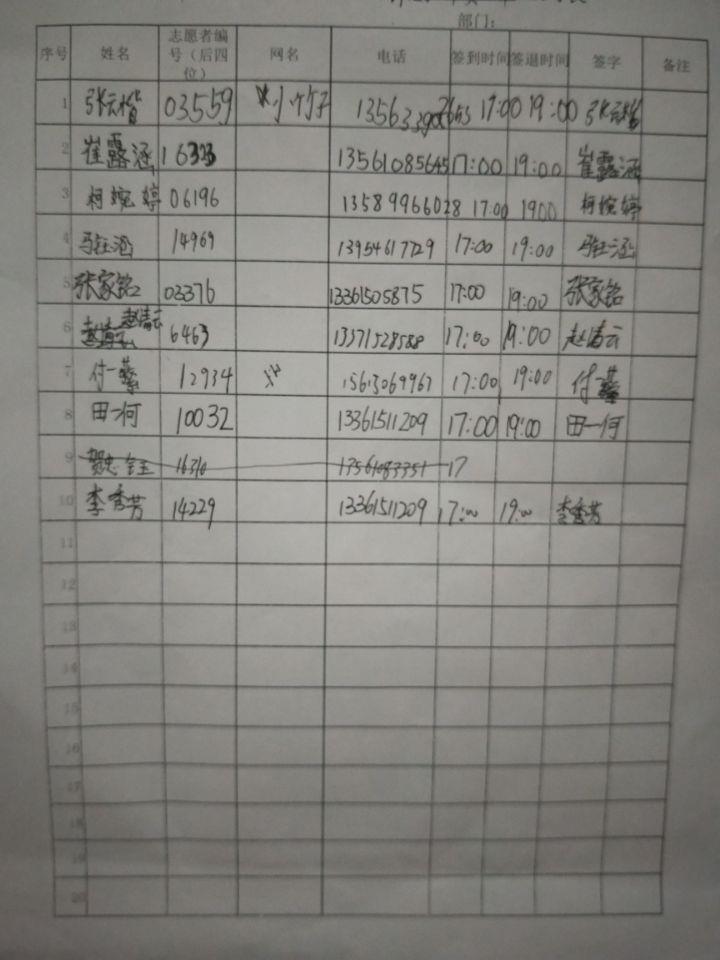 部门：
序号 姓名 志愿者编号（后四位） 网名 电话 签到时间 签退时间 签字 备注
1 张云楷 03559 小竹子 17:00 19:00 张云楷
2 崔露涵 13561085645 17:00 19:00 崔露涵
3 柯婉婷 06196 13589966028 17:00 1900 柯婉婷
4 马钰涵 14969 13954617729 17:00 19:00 马钰涵
5 张家铭 03376 13361505875 17:00 19:00 张家铭
6 赵清云 6463 13371528588 17:00 19:00 赵清云
7 付一蘩 12934 15613069967 17:00 19:00 付一蘩
8 田一河 10032 13361511209 17:00 19:00 田一河
9 16310 13561083351 17
10 李秀芳 14229 13361511209 17:00 19:00 李秀芳
11
12
13
14
15
16
17
18
19
20